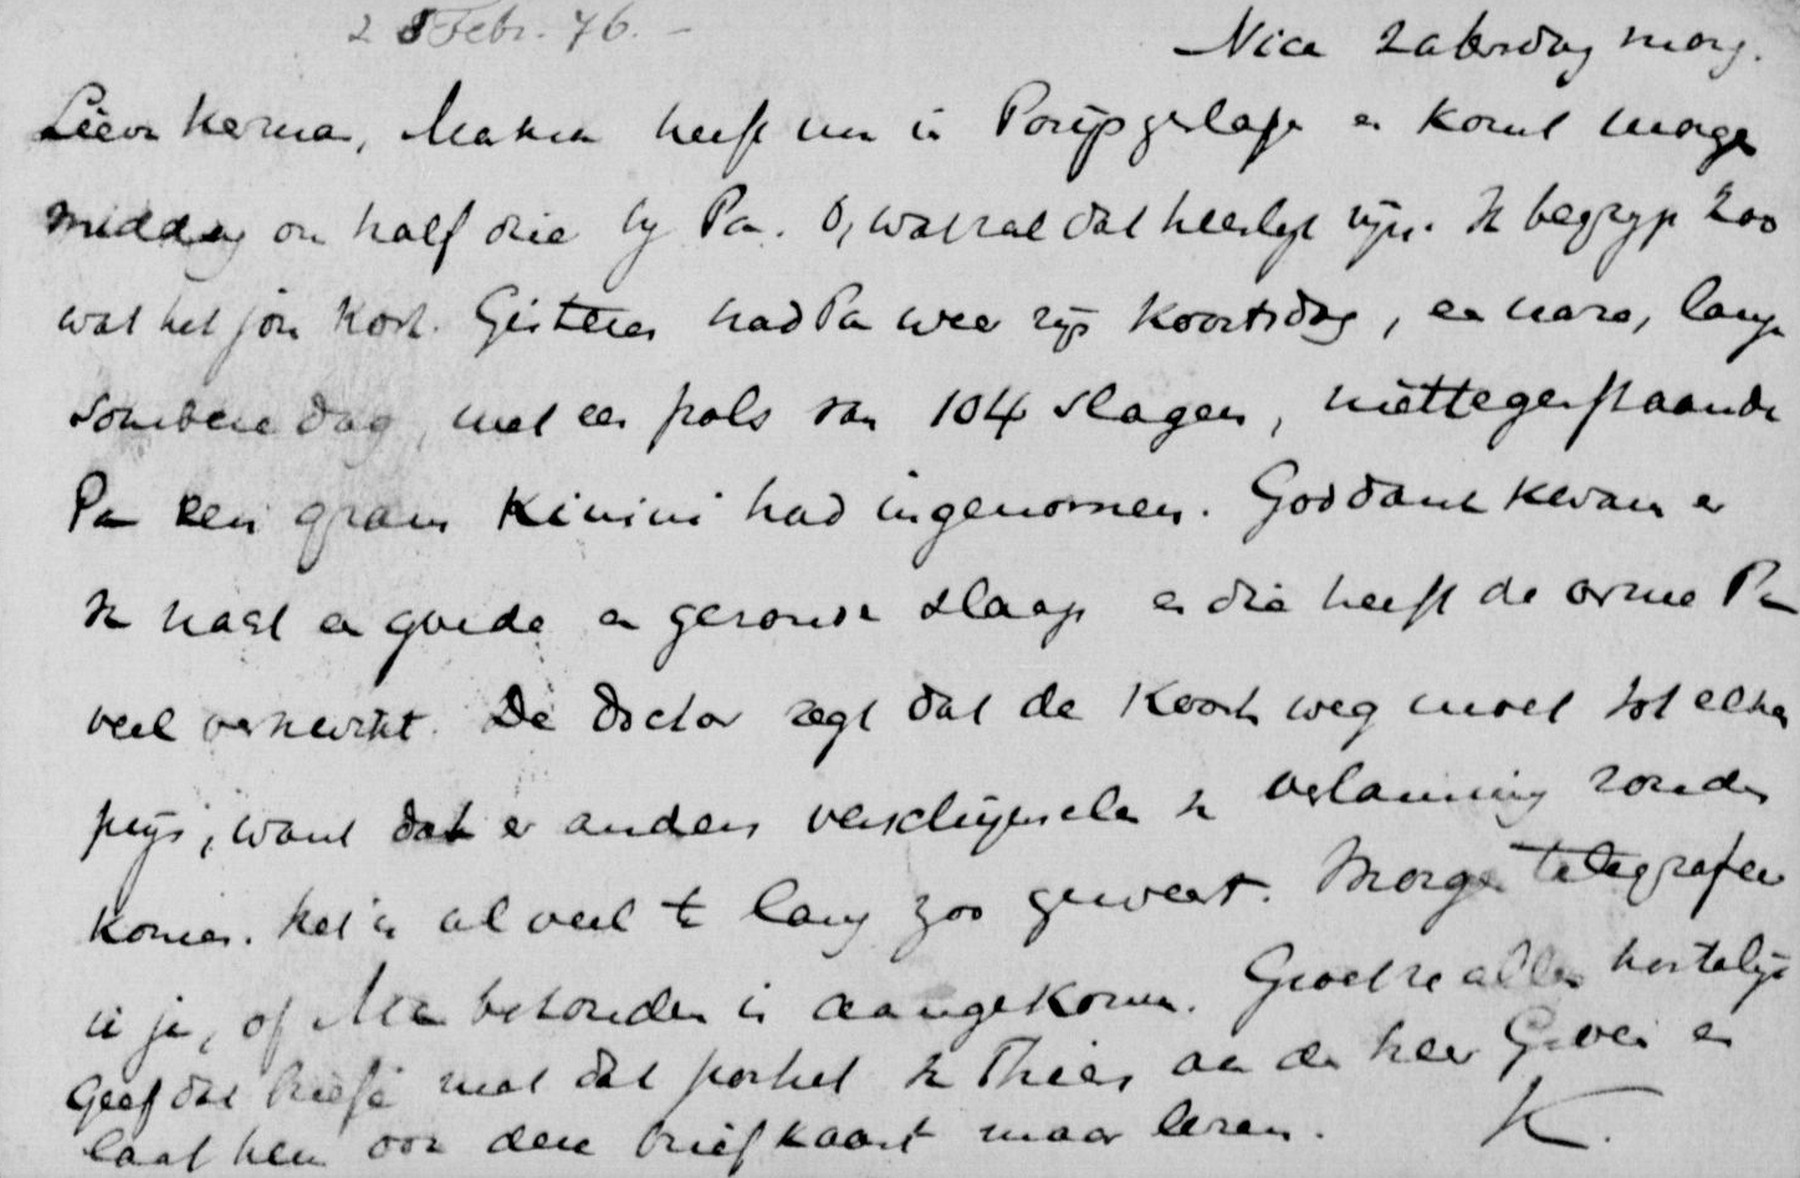 28 Febr. 76. -
Nice Zaterdag morg.
Lieve Herman, Mama heeft nu in Parijs geslapen en komt morgen
middag om half drie by Pa. O, wat zal dat heerlyk zijn. Ik begryp zoo
wat het jou kost. Gisteren had Pa weer zijn koortsdag, een nare, lange
sombere dag, met een pols van 104 slagen, niettegenstaande
Pa een gram kinini had ingenomen. Goddank kwam er
in de nacht een goede en gezonde slaap en die heeft de arme Pa
veel verkwikt. De doctor zegt dat de koorts weg moet tot elken
prijs, want dat er anders verschijnselen van verlamming zouden
komen. Het is al veel te lang zoo geweest. Morgen telegrafeer
ik je, of Ma behouden is aangekomen. Groet ze allen hartelijk
Geef dat briefje met dat portret van Thiers aan de heer en
laat hem ook deze briefkaart maar lezen. K.